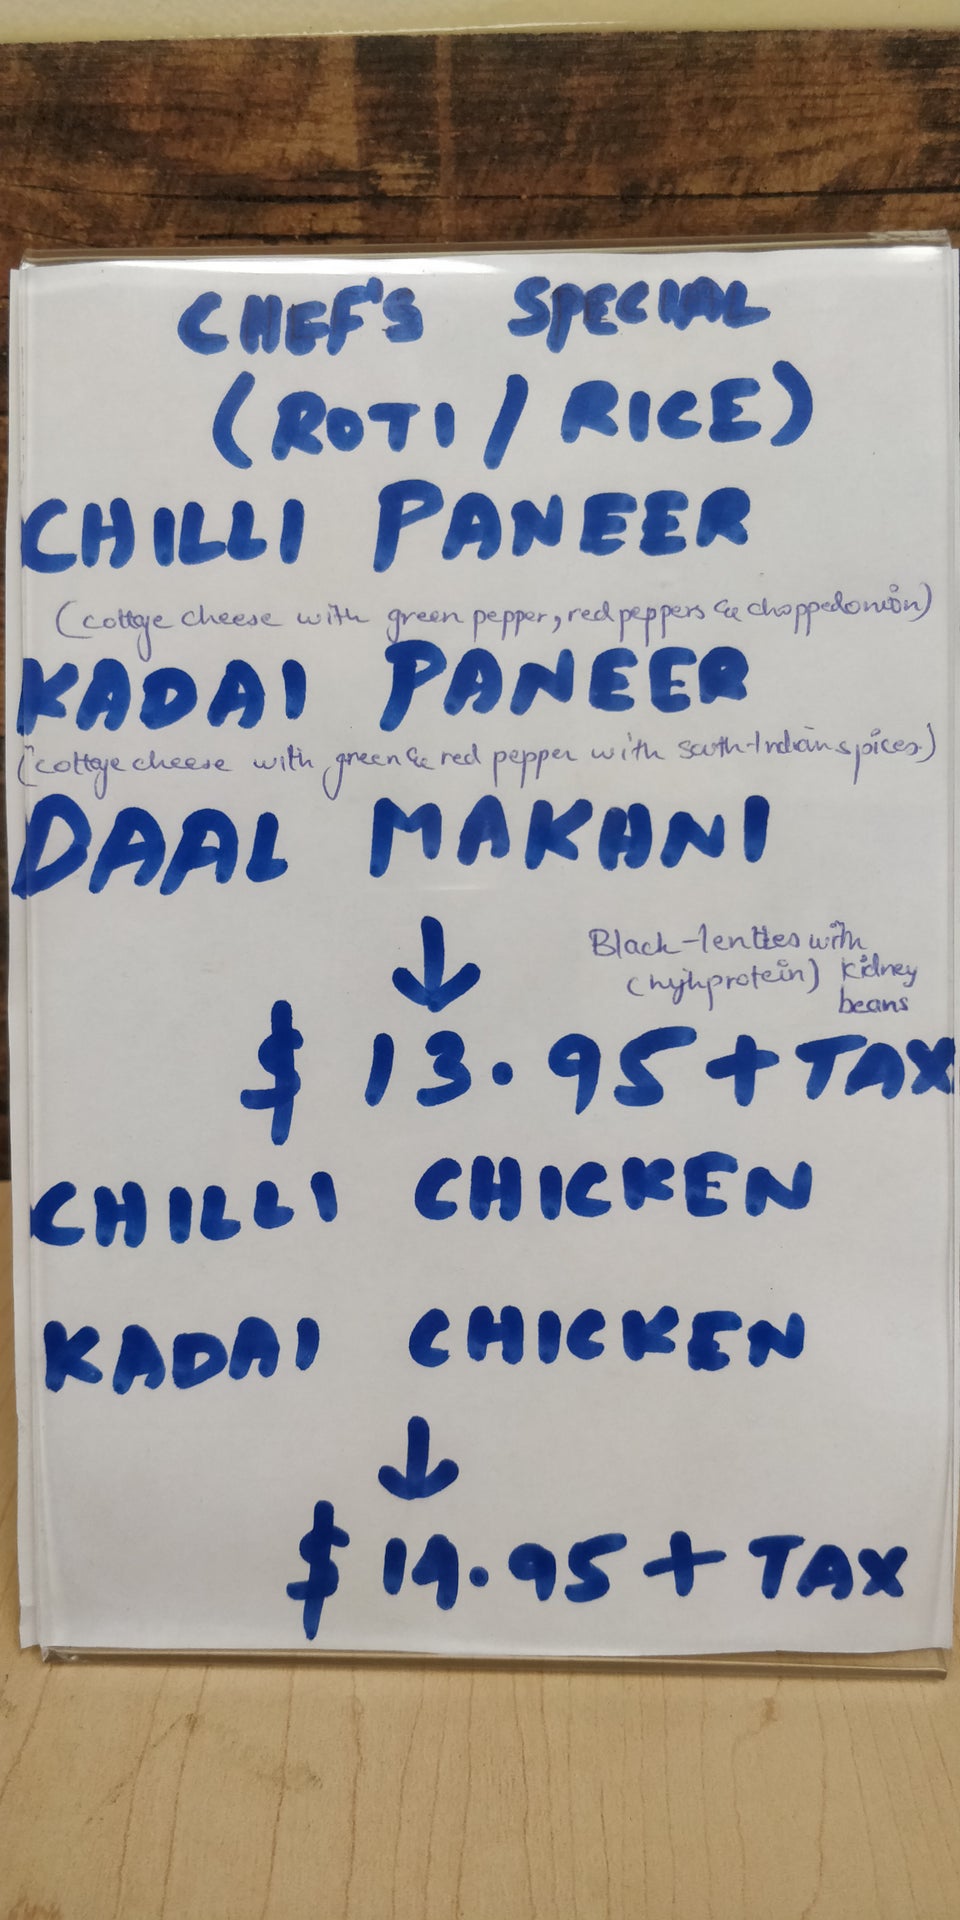 CHEF'S SPECIAL
(ROTI / RICE)
CHILLI PANEER
(cottge cheese with green pepper, red peppers & choppedonion)
KADAI PANEER
(cottge cheese with green & red pepper with south-Indian spices)
DAAL MAKHNI
↓
Black-lentles with
(highprotein) kidney
beans
$ 13.95 + TAX
CHILLI CHICKEN
KADAI CHICKEN
↓
$ 14.95 + TAX